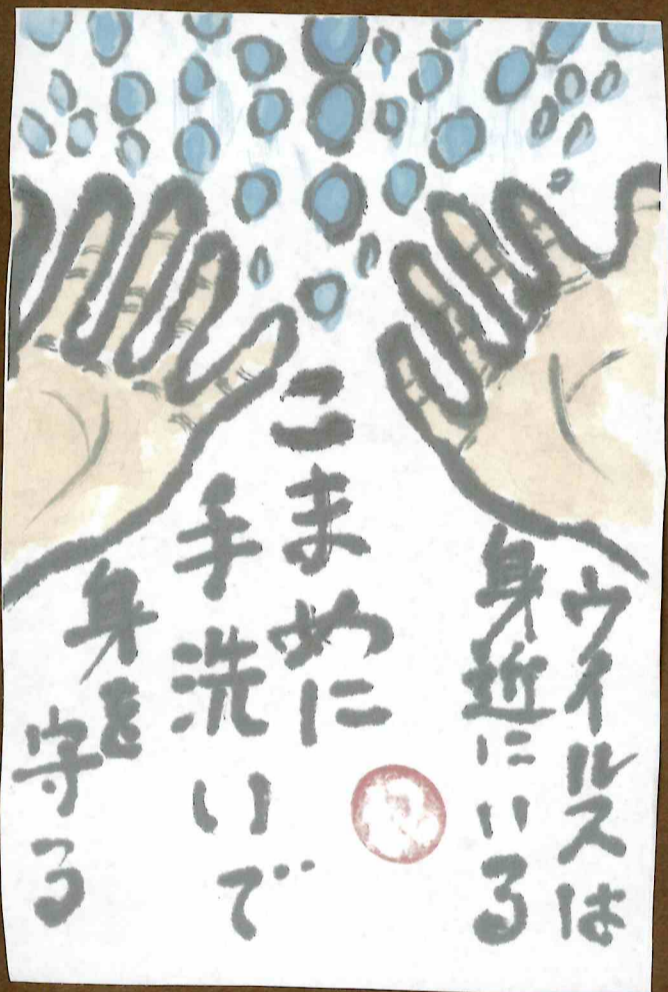 ウイルスは
身近にいる
こまめに
手洗いで
身を
守る